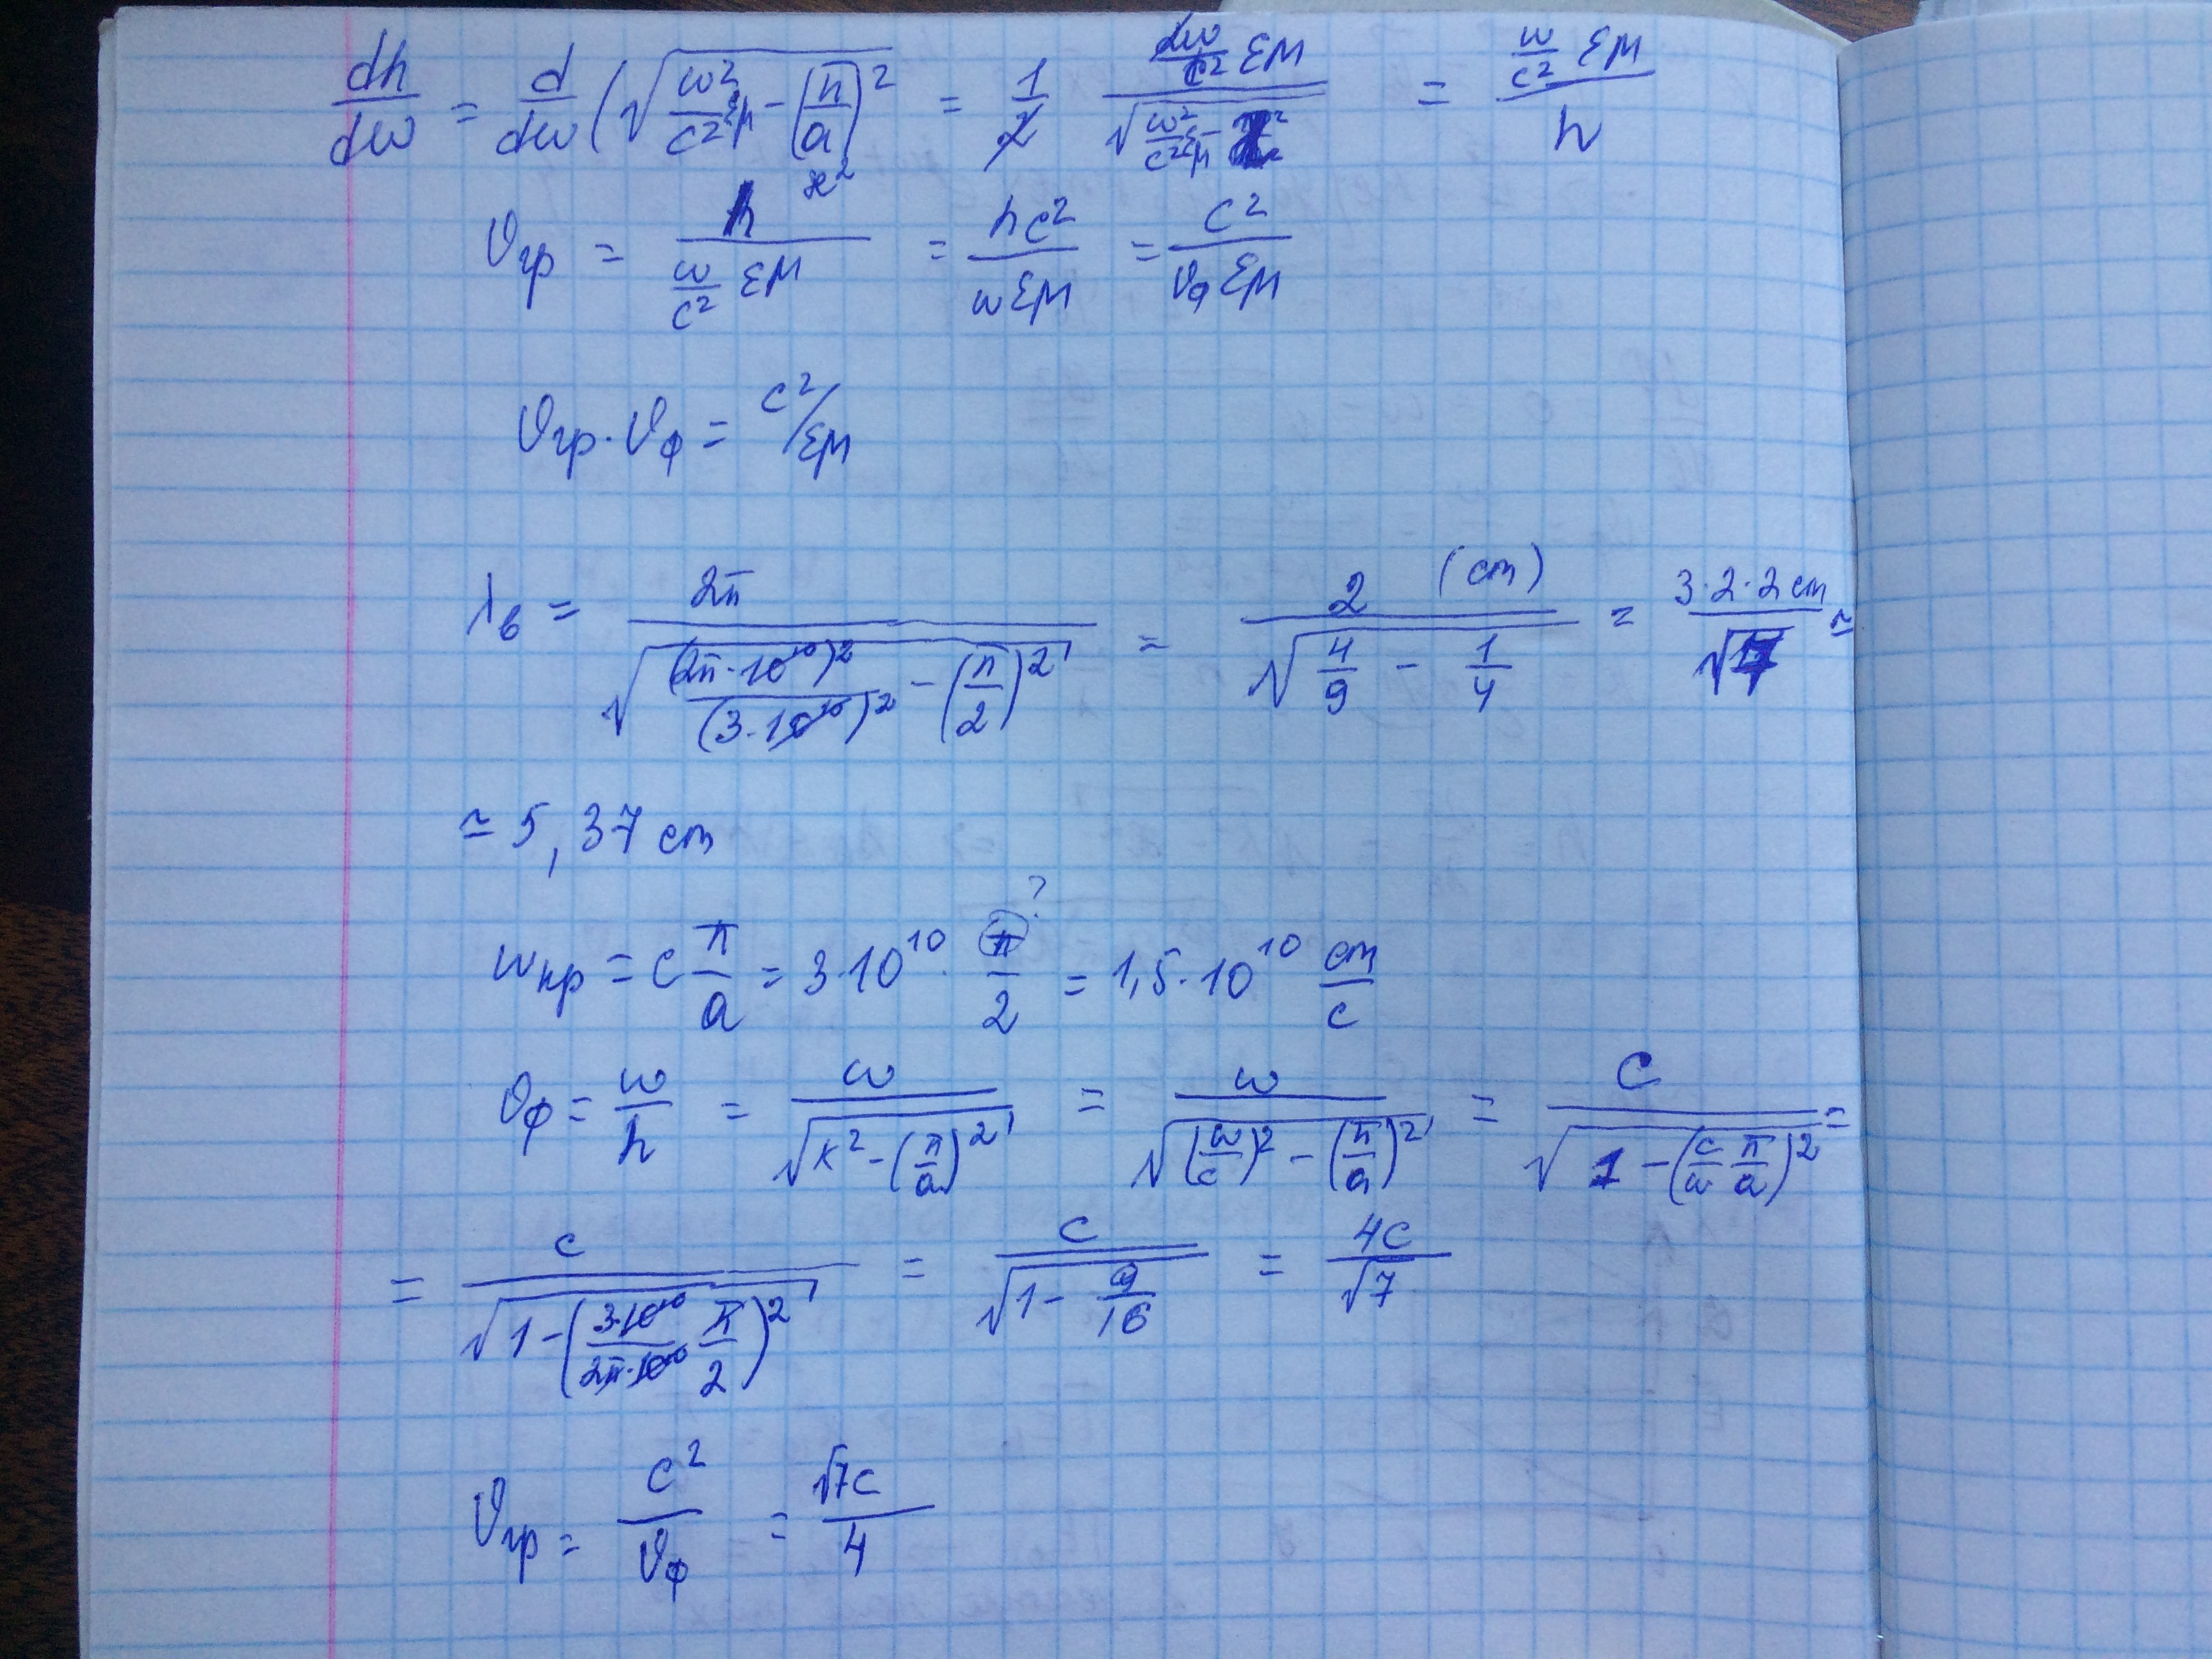 dh/dω = d/dω (√(ω²/c² εμ − (π/a)²) = 1/2 (2ω/c² εμ)/√(ω²/c² εμ − ) = (ω/c² εμ)/h
æ²
υгр = h/(ω/c² εμ) = hc²/(ωεμ) = c²/(υφ εμ)
υгр · υф = c²/εμ
λв = 2π/√((2π·10¹⁰)²/(3·10¹⁰)² − (π/2)²) = 2 (cm)/√(4/9 − 1/4) = 3·2·2 cm/√7 ≃
≃ 5,37 cm
ωкр = c π/a = 3·10¹⁰ · π/2 ? = 1,5·10¹⁰ cm/c
υф = ω/h = ω/√(k² − (π/a)²) = ω/√((ω/c)² − (π/a)²) = c/√(1 − (c/ω π/a)²) =
= c/√(1 − (3·10¹⁰/2π·10¹⁰ π/2)²) = c/√(1 − 9/16) = 4c/√7
υгр = c²/υф = √7c/4